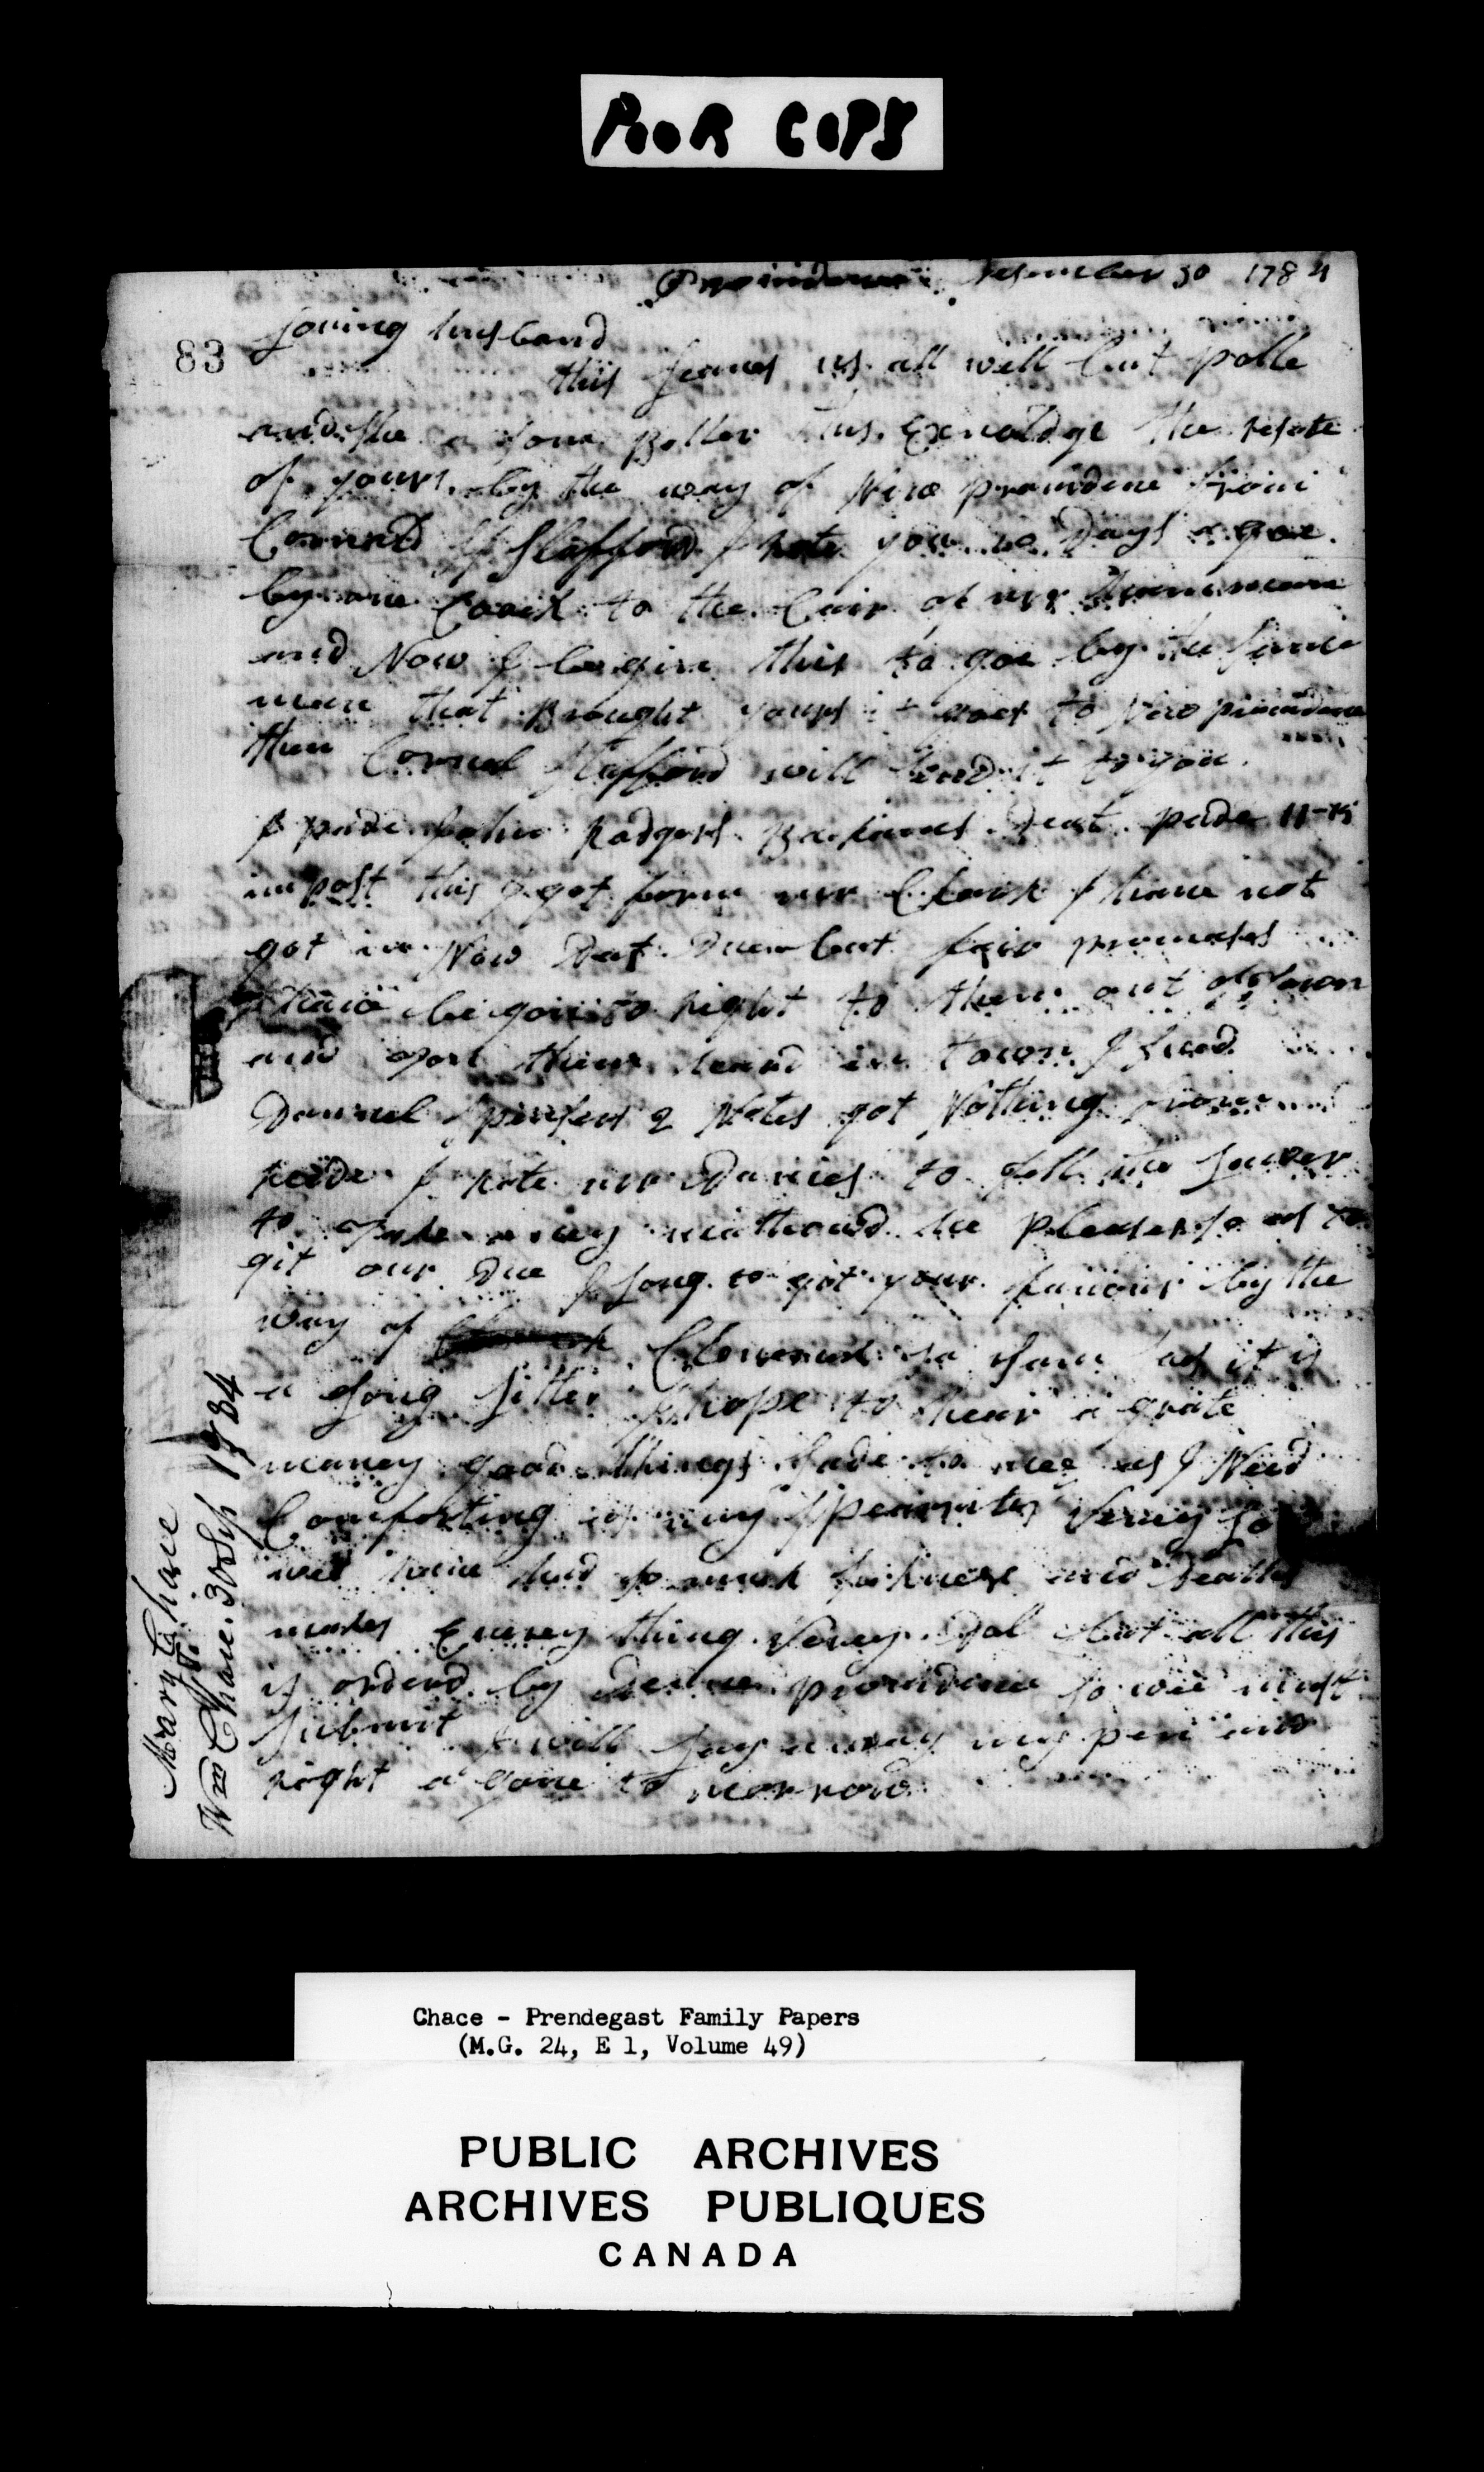 POOR COPY
Providence September 30 1784
83
Loving husband
this Leaves us all well but polle
and she a some Better this Exnoldge the resete
of yours by the way of New providence from
Cornel Stafford I rote you 10 Days a goe
by one Cook to the Cair of mr
and Now I begin this to goe by the same
man that Brought yours it goes to New providence
then Cornel Stafford will send it to you
I pade John Rodgers Dect pade 11-15
impost this I got form mr Clark I have not
got in Now Det Due but fair promases
I have begun to right to them out of Town
and them heard in Town I sued
Danniel Spensers 2 Notes got Nothing from
I rote mr Danies to tell the Lawer
to take aney mathowd he pleases so as to
git our Due I long to git your favour by the
way of Clemend as it is
a Long Litter I hope to hear a grate
maney good things sade to mee as I Need
Comforting is my Spearrits verey Lo
wee have had so much sickness and Deaths
makes Everey thing verey Dul but all this
is orderd by Devine providence so wee must
submit I will Lay a way my pen and
right a gane to morrow
Mary Chace
To
Wm Chace. 30 Sep 1784
Chace - Prendegast Family Papers
(M.G. 24, E 1, Volume 49)
PUBLIC ARCHIVES
ARCHIVES PUBLIQUES
CANADA